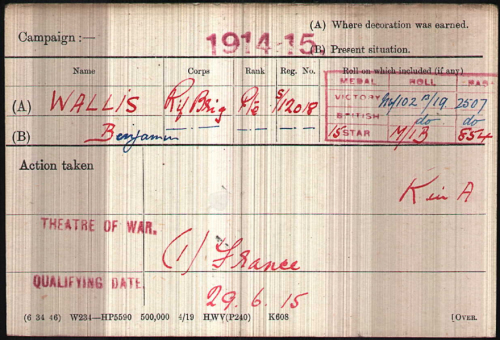 (A) Where decoration was earned.
Campaign :— 1914-15.
(B) Present situation.
Name Corps Rank Reg. No. Roll on which included (if any)
MEDAL ROLL PAGE
(A) WALLIS Rif Brig Pte S/12018 VICTORY H/102 B/19 2507
(B) Benjamin — — — BRITISH do do
15 STAR M/1B 854
Action taken
K in A
THEATRE OF WAR.
(1) France
QUALIFYING DATE
29.6.15
(6 34 46) W234—HP5590 500,000 4/19 HWV(P240) K608 [OVER.